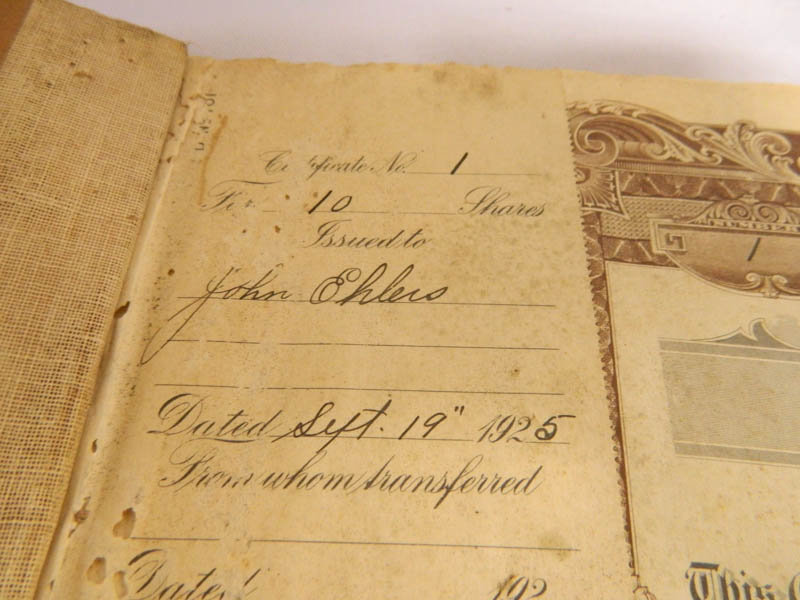 Certificate No. 1
For 10 Shares
Issued to
John Ehlers
Dated Sept. 19" 1925
From whom transferred
Dated 192
NUMBER
1
This